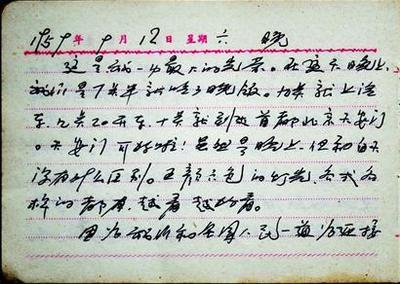 1959年9月12日 星期六 晚
这是我一生最大的光荣。在这天晚上,
我们是7点半就吃了晚饭。点就上汽
车,九点20开车,十点就到了首都北京天安门
。天安门可好啦!虽然是晚上,但和白天
没有什么区别。五颜六色的灯光,各式各
样的都有,越看越好看。
因为我们和全国人民一道为迎接